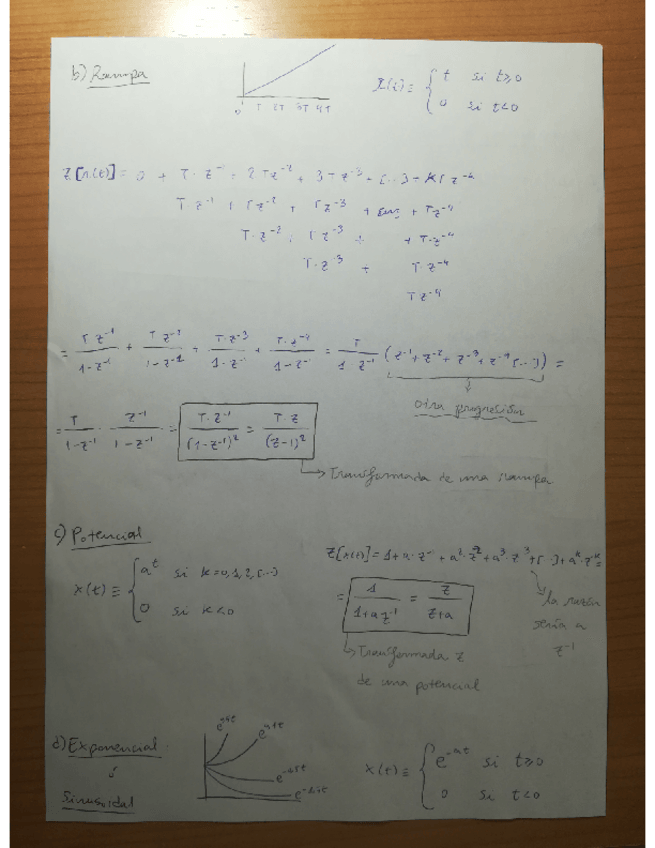 b) Rampa
0 T 2T 3T 4T
r(t) ≡ { t si t≥0
0 si t<0
Z[r(t)] = 0 + T·z⁻¹ + 2Tz⁻² + 3Tz⁻³ + [...] + KTz⁻ᵏ
Tz⁻¹ + Tz⁻² + Tz⁻³ + + Tz⁻⁴
T·z⁻² + T·z⁻³ + + T·z⁻⁴
T·z⁻³ + T·z⁻⁴
Tz⁻⁴
= Tz⁻¹/(1-z⁻¹) + T·z⁻²/(1-z⁻¹) + T·z⁻³/(1-z⁻¹) + T·z⁻⁴/(1-z⁻¹) = T/(1-z⁻¹) (z⁻¹+z⁻²+z⁻³+z⁻⁴[...]) =
otra progresión
= T/(1-z⁻¹) · z⁻¹/(1-z⁻¹) = T·z⁻¹/(1-z⁻¹)² = T·z/(z-1)²
→ Transformada de una rampa
c) Potencial
x(t) ≡ { aᵗ si k=0,1,2,[...]
0 si k<0
Z[x(t)] = 1 + a·z⁻¹ + a²·z⁻² + a³·z⁻³ + [...] + aᵏ·z⁻ᵏ =
= 1/(1+az⁻¹) = z/(z+a)
la razón
sería a
z⁻¹
→ Transformada z
de una potencial
d) Exponencial
ó
Sinusoidal
x(t) ≡ { e⁻ᵃᵗ si t≥0
0 si t<0